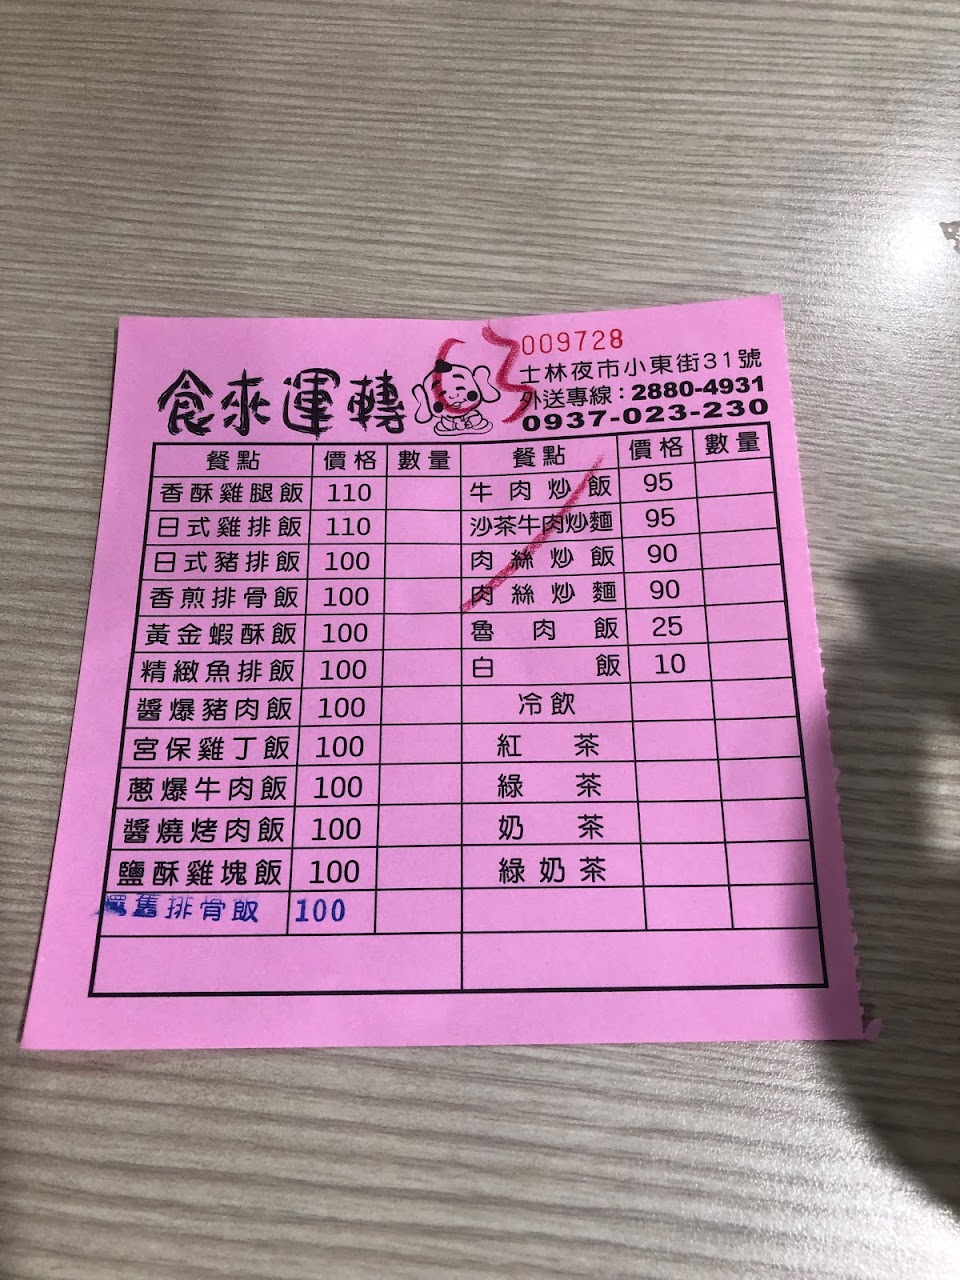 009728
食來運轉
士林夜市小東街31號
外送專線：2880-4931
0937-023-230
餐點 價格 數量 餐點 價格 數量
香酥雞腿飯 110 牛肉炒飯 95
日式雞排飯 110 沙茶牛肉炒麵 95
日式豬排飯 100 肉絲炒飯 90
香煎排骨飯 100 肉絲炒麵 90
黃金蝦酥飯 100 魯肉飯 25
精緻魚排飯 100 白飯 10
醬爆豬肉飯 100 冷飲
宮保雞丁飯 100 紅茶
蔥爆牛肉飯 100 綠茶
醬燒烤肉飯 100 奶茶
鹽酥雞塊飯 100 綠奶茶
舊排骨飯 100